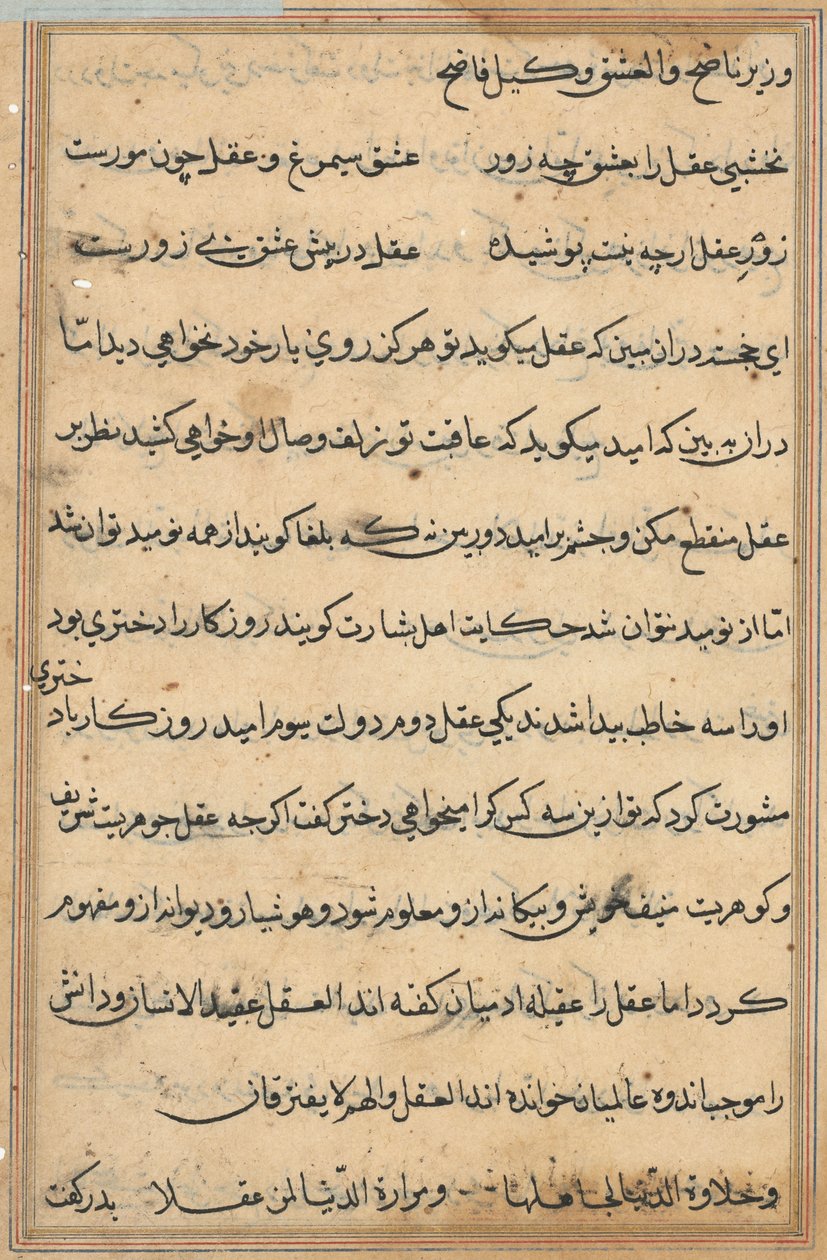 وزیر ناضح والعشق وکیل فاضح
نخشبی عقل را بعشق چه زور عشق سیمرغ و عقل چون مورست
زورِ عقل ارچه نیست پوشیده عقل در پیش عشق بی زورست
ای خجسته دران مبین که عقل میکوید تو هرکز روی یار خود نخواهی دید امّا
دران به بین که امید میکوید که عاقبت تو زلف وصال او خواهی کشید نظر بر
عقل منقطع مکن و جشم بر امید دوربین نه که بلغا کویند از همه نومید توان شد
امّا از نومید نتوان شد حکایت اهل بشارت کویند روزکار را دختری بود
او را سه خاطب بیدا شدند یکی عقل دوم دولت سوم امید روزکار باد
ختری
مشورت کرد که تو ازین سه کس کرا میخواهی دختر کفت اکرجه عقل جوهریت شریف
و کوهریت منیف خویش و بیکانه ازو معلوم شود و هوشیار و دیوانه ازو مفهوم
کردد اما عقل را عقیله ادمیان کفته اند العقل عقید الانسان و دانش
را موجب اندوه عالمیان خوانده اند العقل والهم لا یفترقان
وحلاوة الدّنیا لجاهلها ومرارة الدّنیا لمن عقلا بدر کفت